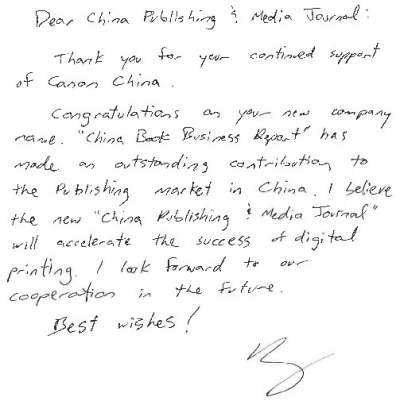 Dear China Publishing & Media Journal:
Thank you for your continued support
of Canon China.
Congratulations on your new company
name. "China Book Business Report" has
made an outstanding contribution to
the Publishing market in China. I believe
the new "China Publishing & Media Journal"
will accelerate the success of digital
printing. I look forward to our
cooperation in the future.
Best wishes!